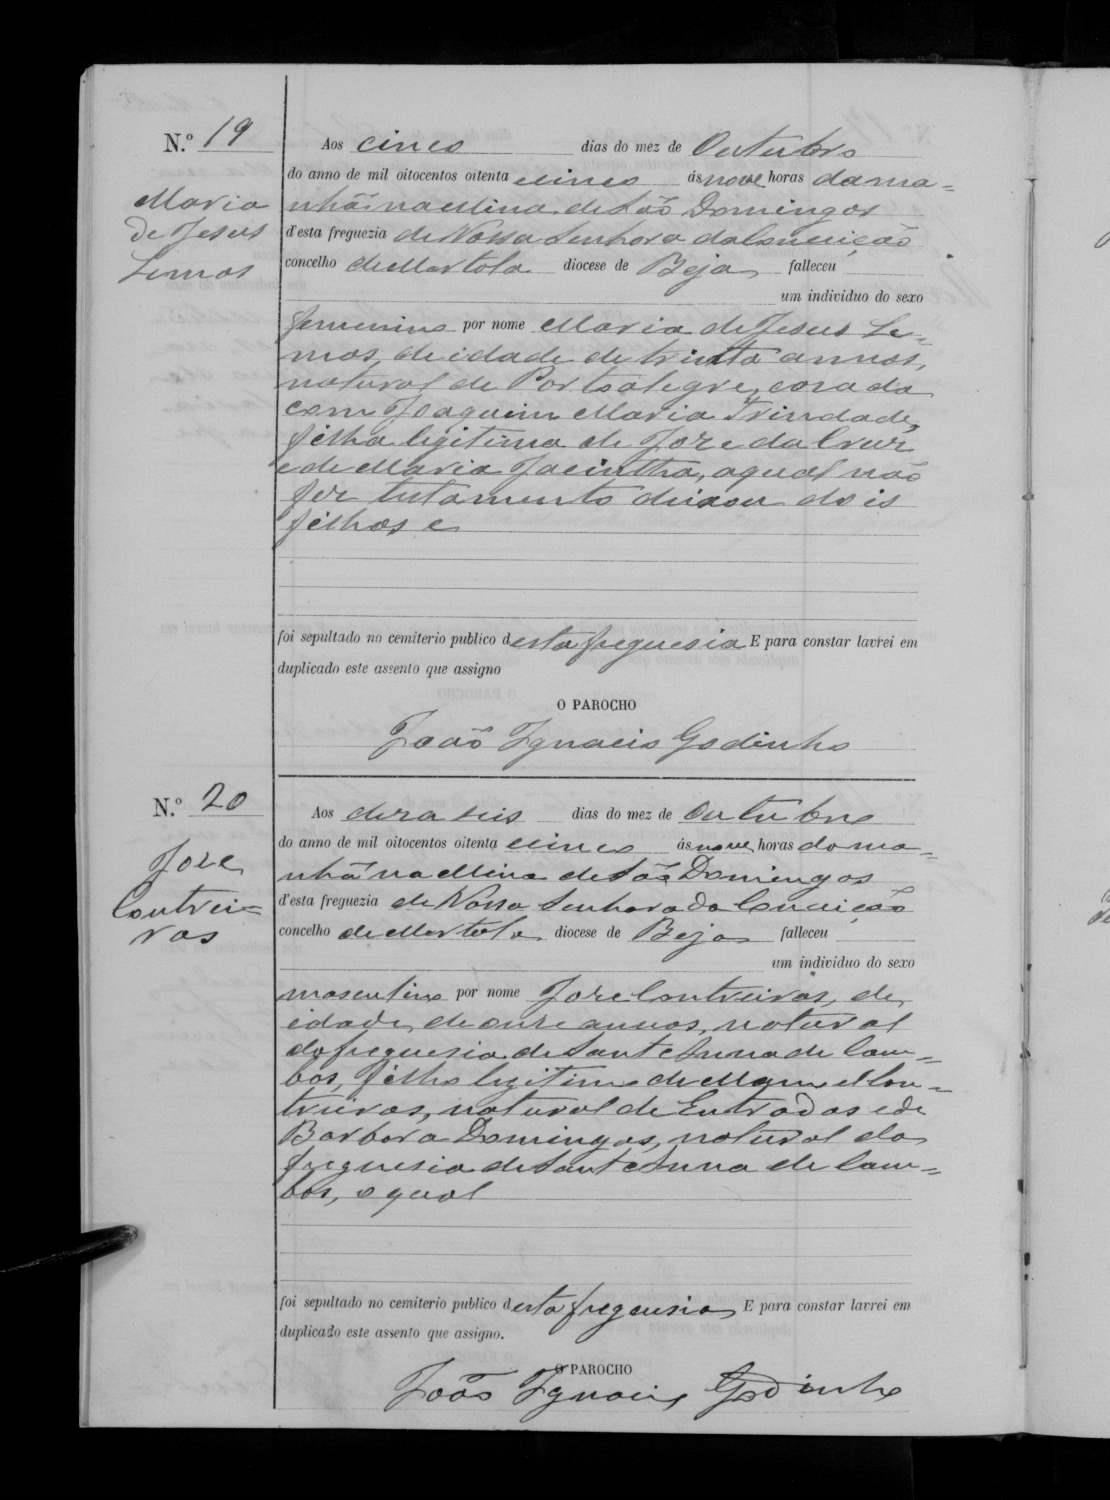 N.º 19
Maria
de Jesus
Lemos
Aos cinco dias do mez de Outubro
do anno de mil oitocentos oitenta e cinco ás nove horas da ma=
nhã na Mina de São Domingos
d'esta freguezia de Nossa Senhora da Conceição
concelho de Mertola diocese de Beja falleceu
um individuo do sexo
femenino por nome Maria de Jesus Le-
mos, de idade de trinta annos,
natural de Portoalegre, casada
com Joaquim Maria Trindade,
filha legitima de Jose da Cruz
e de Maria Jacintha, a qual não
fez testamento deixou dois
filhos e
foi sepultado no cemiterio publico d esta freguesia E para constar lavrei em
duplicado este assento que assigno
O PAROCHO
João Ignacio Godinho
N.º 20
Jose
Contrei=
ras
Aos dezaseis dias do mez de Outubro
do anno de mil oitocentos oitenta e cinco ás nove horas da ma=
nhã na Mina de São Domingos
d'esta freguezia de Nossa Senhora da Conceição
concelho de Mertola diocese de Beja falleceu
um individuo do sexo
masculino por nome Jose Contreiras, de
idade de onze annos, natural
da freguesia de Sant'Anna de Cam=
bas, filho legitimo de Manuel Con=
treiras, natural de Entradas e de
Barbara Domingas, natural da
freguesia de Sant'Anna de Cam=
bas, o qual
foi sepultado no cemiterio publico d esta freguesia E para constar lavrei em
duplicado este assento que assigno.
O PAROCHO
João Ignacio Godinho